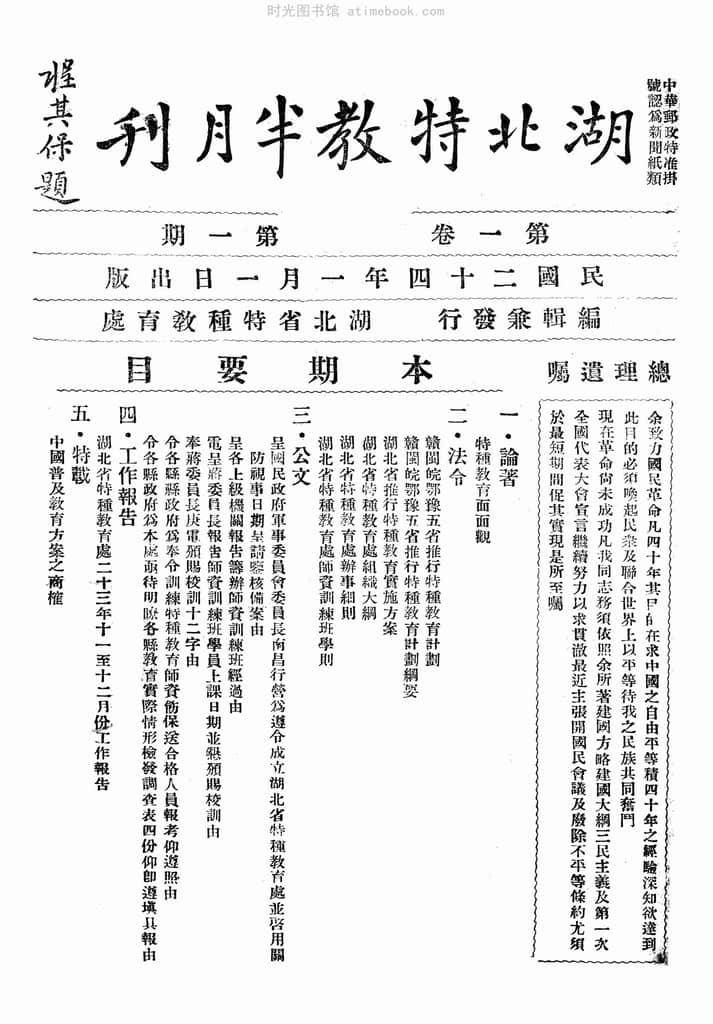 时光图书馆 - atimebook.com
中華郵政特准掛
號認爲新聞紙類
湖北特教半月刊
程其保題
第一卷　第一期
民國二十四年一月一日出版
編輯兼發行　湖北省特種教育處
總理遺囑
余致力國民革命凡四十年其目的在求中國之自由平等積四十年之經驗深知欲達到
此目的必須喚起民衆及聯合世界上以平等待我之民族共同奮鬥
現在革命尚未成功凡我同志務須依照余所著建國方略建國大綱三民主義及第一次
全國代表大會宣言繼續努力以求貫澈最近主張開國民會議及廢除不平等條約尤須
於最短期間促其實現是所至囑
本期要目
一・論著
特種教育面面觀
二・法令
贛閩皖鄂豫五省推行特種教育計劃
贛閩皖鄂豫五省推行特種教育計劃綱要
湖北省推行特種教育實施方案
湖北省特種教育處組織大綱
湖北省特種教育處辦事細則
湖北省特種教育處師資訓練班學則
三・公文
呈國民政府軍事委員會委員長南昌行營爲遵令成立湖北省特種教育處並啓用關
防視事日期呈請鑒核備案由
呈各上級機關報告籌辦師資訓練班經過由
電呈蔣委員長報告師資訓練班學員上課日期並懇頒賜校訓由
奉蔣委員長庚電頒賜校訓十二字由
令各縣縣政府爲奉令訓練特種教育師資飭保送合格人員報考仰遵照由
令各縣政府爲本處亟待明瞭各縣教育實際情形檢發調查表四份仰卽遵填具報由
四・工作報告
湖北省特種教育處二十三年十一至十二月份工作報告
五・特載
中國普及教育方案之商榷